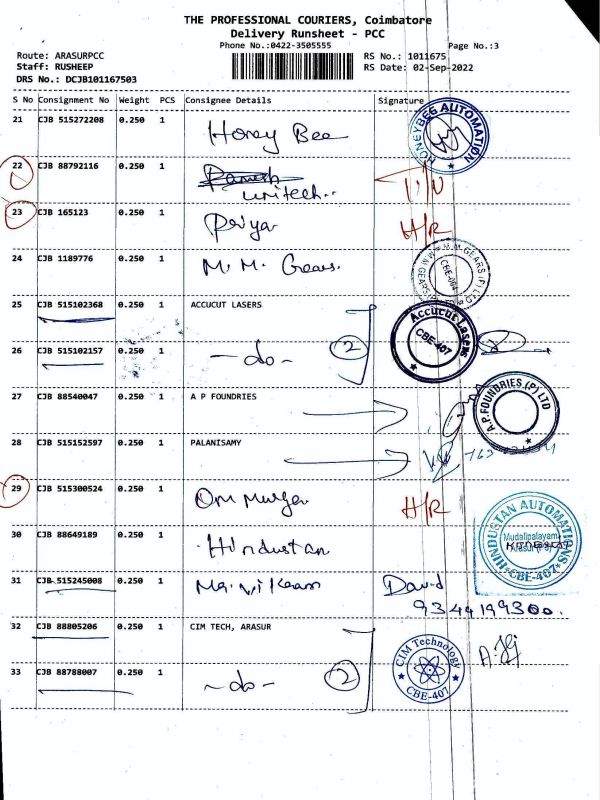 THE PROFESSIONAL COURIERS, Coimbatore
Delivery Runsheet - PCC
Phone No.:0422-3505555
Page No.:3
Route: ARASURPCC
RS No.: 1011675
Staff: RUSHEEP
RS Date: 02-Sep-2022
DRS No.: DCJB101167503
S No Consignment No Weight PCS Consignee Details Signature
21 CJB 515272208 0.250 1 Honey Bee HONEYBEE AUTOMATION
22 CJB 88792116 0.250 1 Unitech..
23 CJB 165123 0.250 1 Priya H/R
24 CJB 1189776 0.250 1 M. M. Gears. M.M GEARS (P) LTD
25 CJB 515102368 0.250 1 ACCUCUT LASERS Accucut Lasers CBE-407
26 CJB 515102157 0.250 1 -do- 2
27 CJB 88540047 0.250 1 A P FOUNDRIES A.P.FOUNDRIES (P) LTD
28 CJB 515152597 0.250 1 PALANISAMY
29 CJB 515300524 0.250 1 H/R
30 CJB 88649189 0.250 1 Hindustan HINDUSTAN AUTOMATIONS Mudalipalayam CBE-407
31 CJB 515245008 0.250 1 David
9344199300.
32 CJB 88805206 0.250 1 CIM TECH, ARASUR CIM Technology CBE-407
33 CJB 88788007 0.250 1 -do- 2